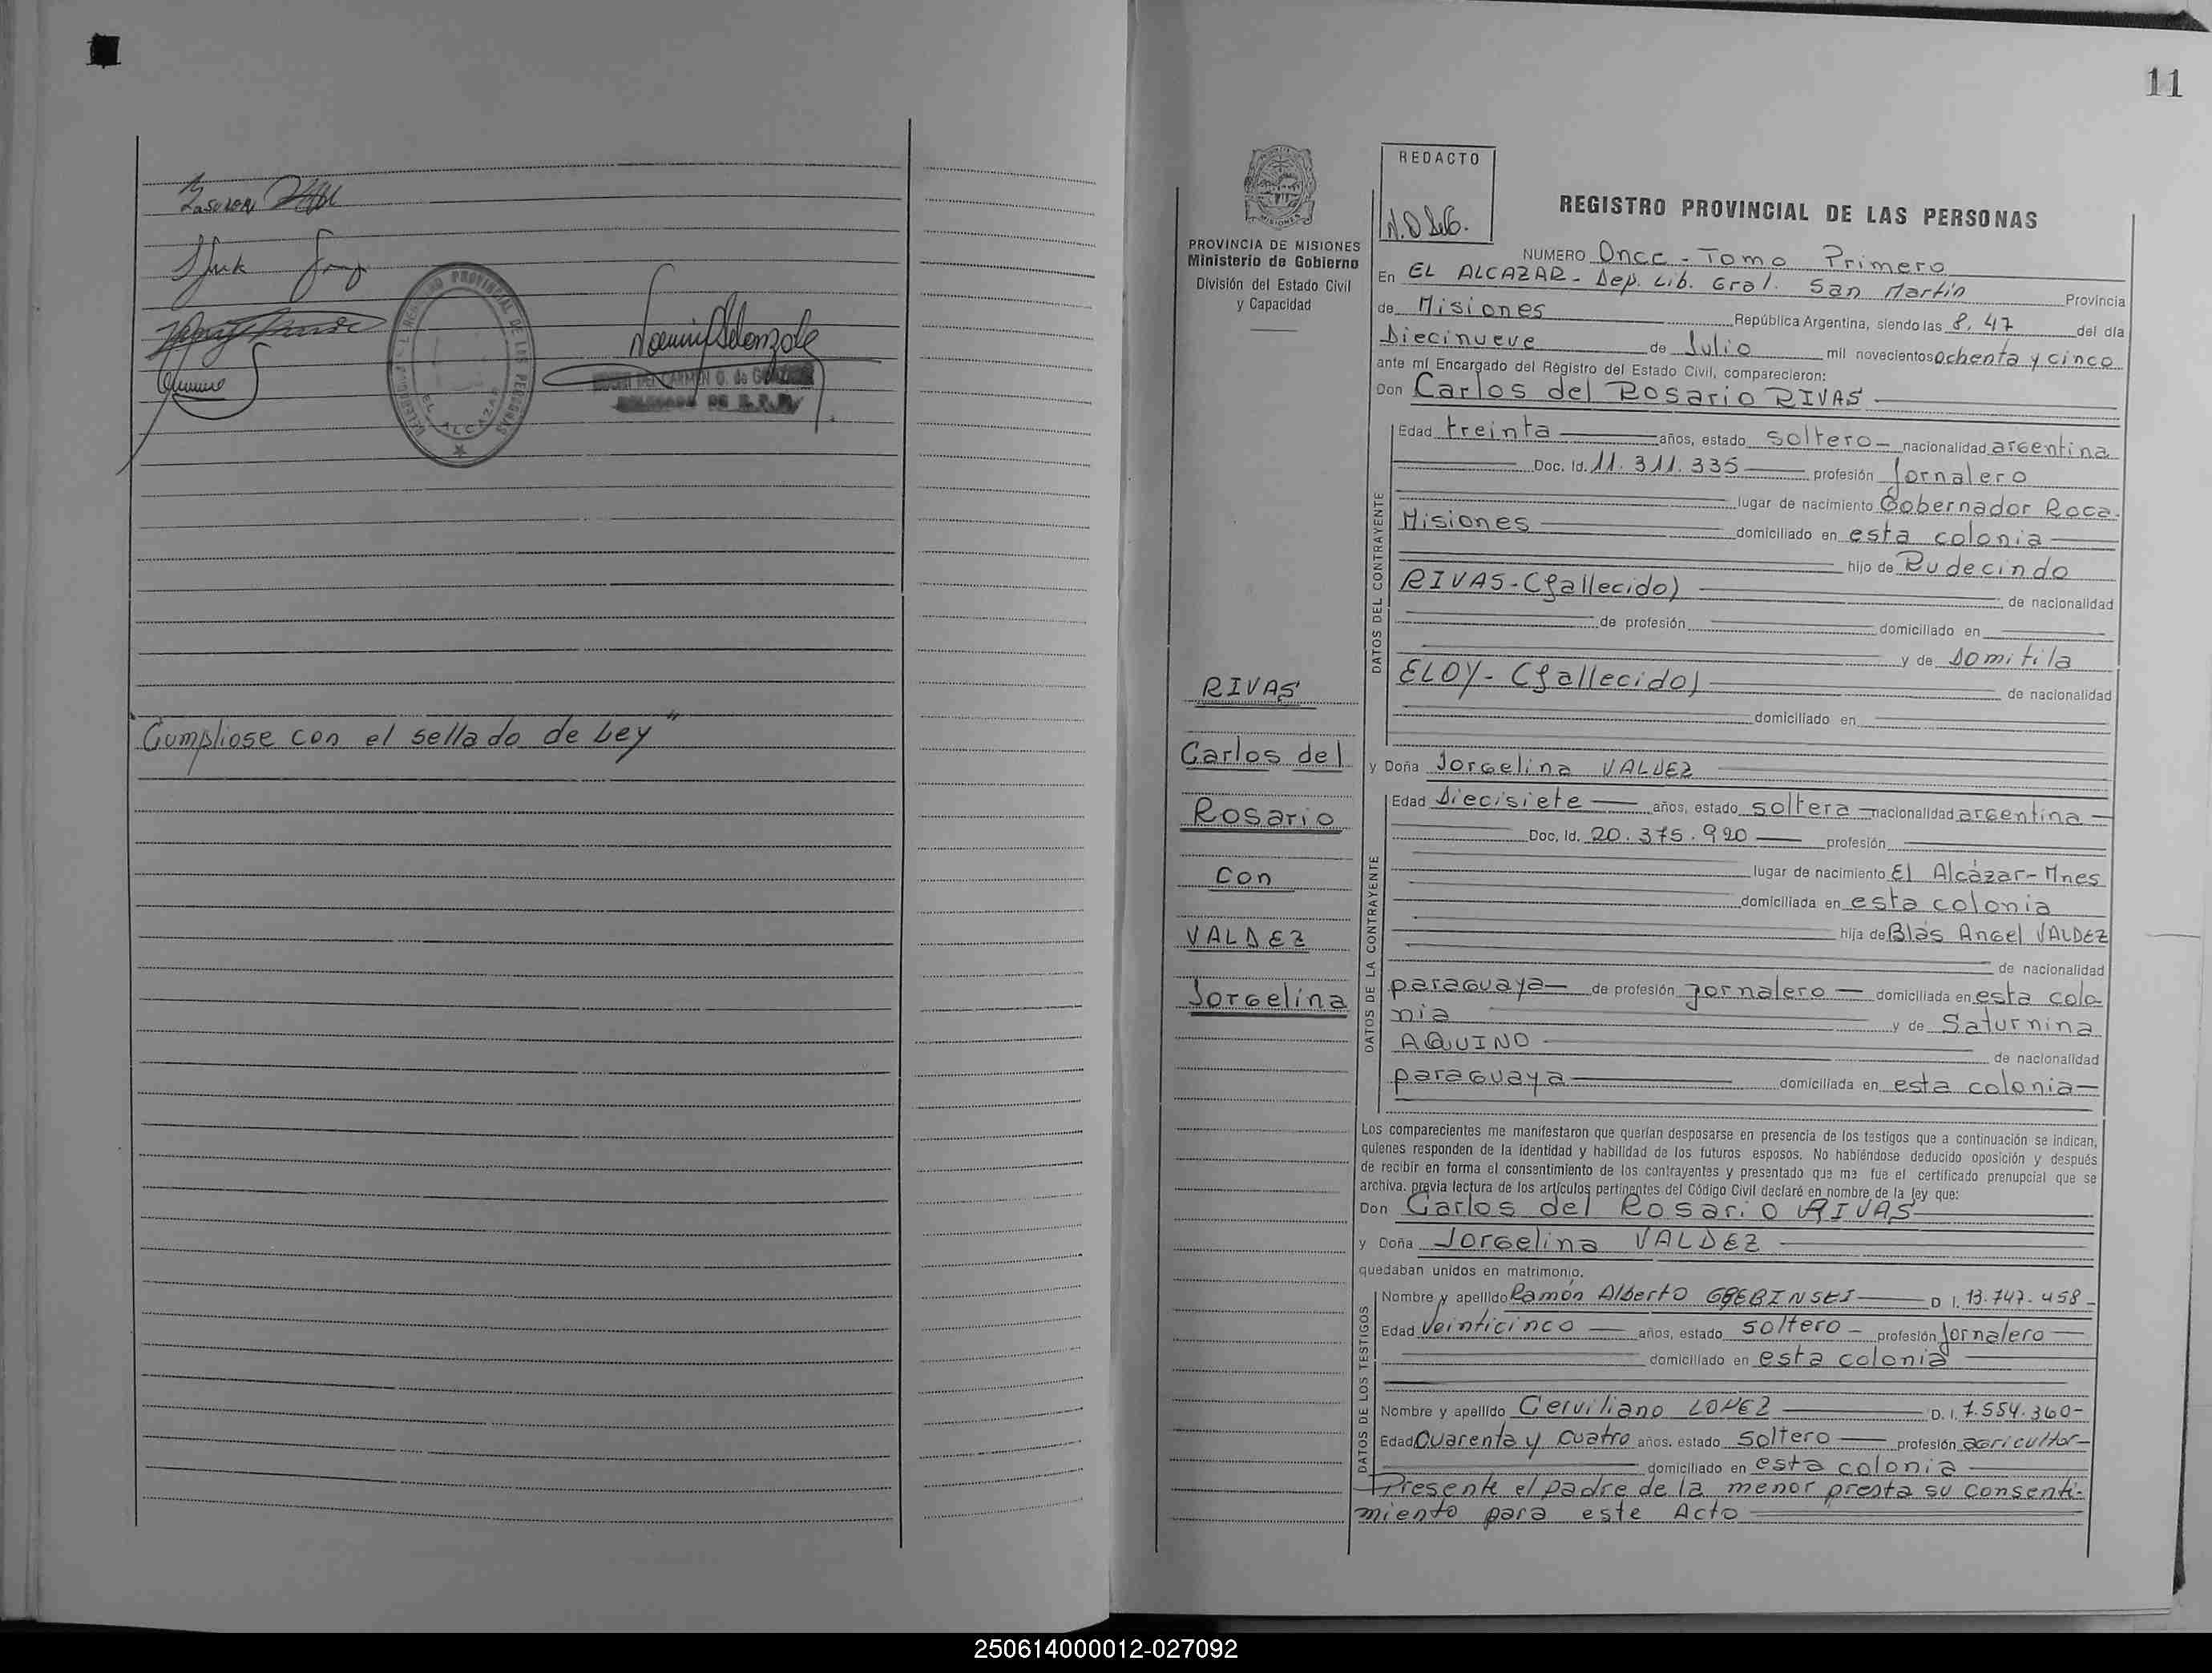 Cumpliose con el sellado de Ley"
11
REDACTO
REGISTRO PROVINCIAL DE LAS PERSONAS
PROVINCIA DE MISIONES
Ministerio de Gobierno
División del Estado Civil
y Capacidad
NUMERO Once - Tomo Primero
En EL ALCAZAR - Dep. Lib. Gral. San Martín Provincia
de Misiones República Argentina, siendo las 8,47 del día
Diecinueve de Julio mil novecientos ochenta y cinco
ante mí Encargado del Registro del Estado Civil, comparecieron:
Don Carlos del Rosario RIVAS
DATOS DEL CONTRAYENTE
Edad treinta años, estado soltero - nacionalidad argentina
Doc. Id. 11.311.335 profesión Jornalero
lugar de nacimiento Gobernador Roca -
Misiones domiciliado en esta colonia
hijo de Rudecindo
RIVAS - (fallecido) de nacionalidad
de profesión domiciliado en
y de Domitila
ELOY - (fallecido) de nacionalidad
domiciliado en
RIVAS
Carlos del
Rosario
con
VALDEZ
Jorgelina
y Doña Jorgelina VALDEZ
DATOS DE LA CONTRAYENTE
Edad Diecisiete años, estado soltera nacionalidad argentina
Doc. Id. 20.375.920 profesión
lugar de nacimiento El Alcázar - Mnes
domiciliada en esta colonia
hija de Blás Angel VALDEZ
de nacionalidad
paraguaya de profesión jornalero domiciliada en esta colo
nia y de Saturnina
AQUINO de nacionalidad
paraguaya domiciliada en esta colonia
Los comparecientes me manifestaron que querían desposarse en presencia de los testigos que a continuación se indican,
quienes responden de la identidad y habilidad de los futuros esposos. No habiéndose deducido oposición y después
de recibir en forma el consentimiento de los contrayentes y presentado que me fue el certificado prenupcial que se
archiva, previa lectura de los artículos pertinentes del Código Civil declaré en nombre de la ley que:
Don Carlos del Rosario RIVAS
y Doña Jorgelina VALDEZ
quedaban unidos en matrimonio.
DATOS DE LOS TESTIGOS
Nombre y apellido Ramón Alberto D I. 13.747.458 -
Edad Veinticinco años, estado soltero - profesión Jornalero
domiciliado en esta colonia
Nombre y apellido Cerviliano LOPEZ D. I. 7.554.360 -
Edad Cuarenta y cuatro años, estado soltero profesión agricultor -
domiciliado en esta colonia
Presente el padre de la menor presta su consenti-
miento para este Acto
250614000012-027092